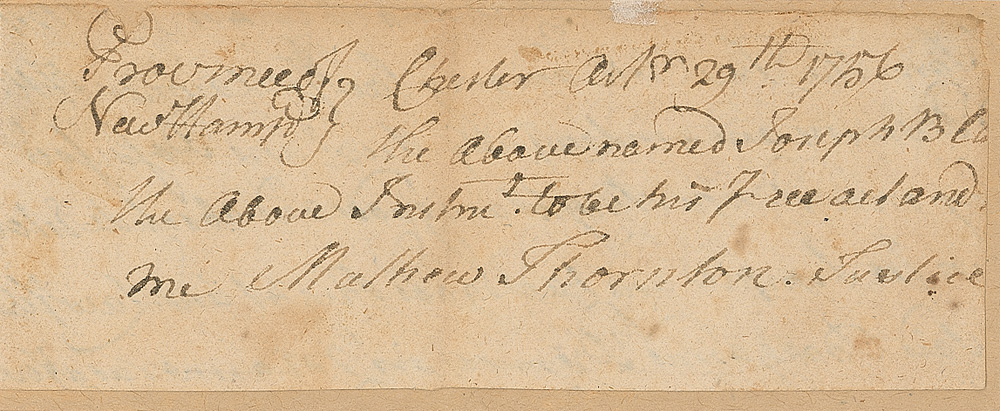 Province of } Chester Octbr 29th 1756
New Hampr } the above named Joseph Bla
the above Instrut. to be his Free act and
me Mathew Thornton. Justice